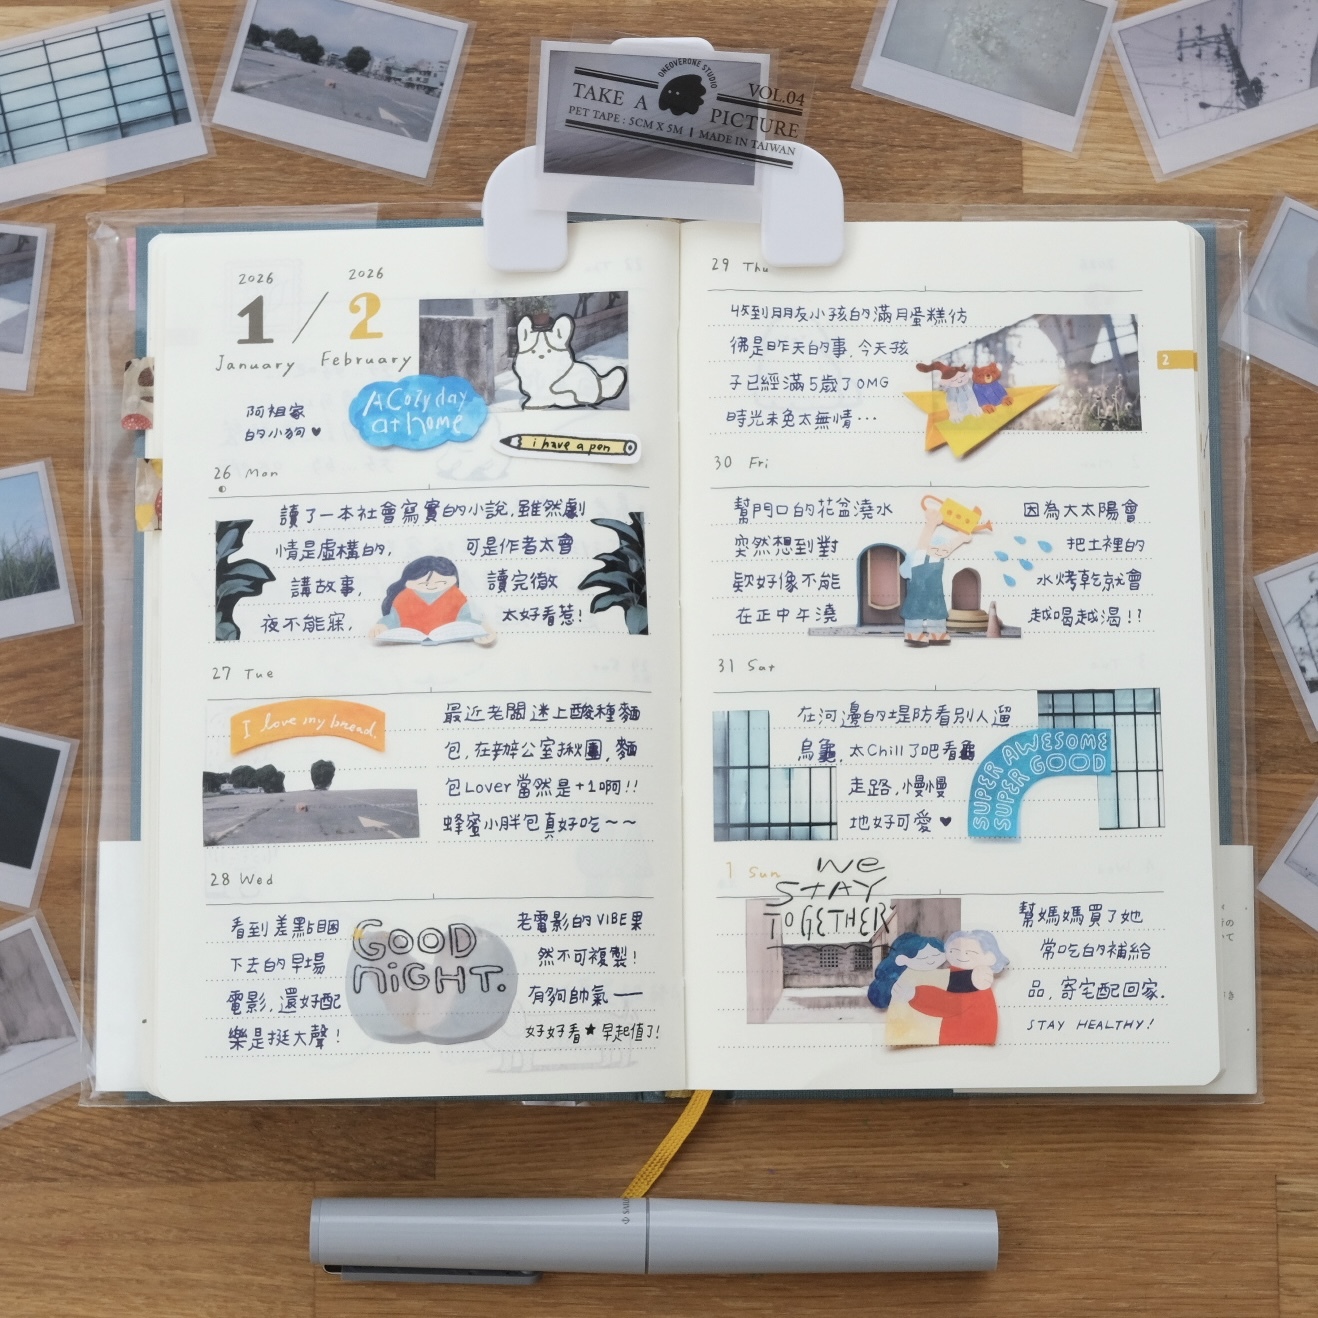 ONEOVERONE STUDIO
TAKE A PICTURE VOL.04
PET TAPE : 5CM X 5M | MADE IN TAIWAN
2026 2026
1 / 2
January February
阿祖家
的小狗♥
A Cozy day
at home
i have a pen
26 Mon
讀了一本社會寫實的小說,雖然劇
情是虛構的, 可是作者太會
講故事, 讀完徹
夜不能寐, 太好看惹!
27 Tue
I love my bread.
最近老闆迷上酸種麵
包,在辦公室揪團,麵
包Lover當然是+1啊!!
蜂蜜小胖包真好吃~~
28 Wed
看到差點睏
下去的早場
電影,還好配
樂是挺大聲!
GOOD
NiGHT.
老電影的VIBE果
然不可複製!
有夠帥氣——
好好看★早起值了!
29 Thu
收到朋友小孩的滿月蛋糕仿
彿是昨天的事,今天孩
子已經滿5歲了OMG
時光未免太無情…
2
30 Fri
幫門口的花盆澆水
突然想到對
欸好像不能
在正中午澆
因為大太陽會
把土裡的
水烤乾就會
越喝越渴!?
31 Sat
在河邊的堤防看別人遛
烏龜,太Chill了吧看龜
走路,慢慢
地好可愛♥
SUPER AWESOME
SUPER GOOD
1 Sun
We
STAY
TOGETHER
幫媽媽買了她
常吃的補給
品,寄宅配回家.
STAY HEALTHY!